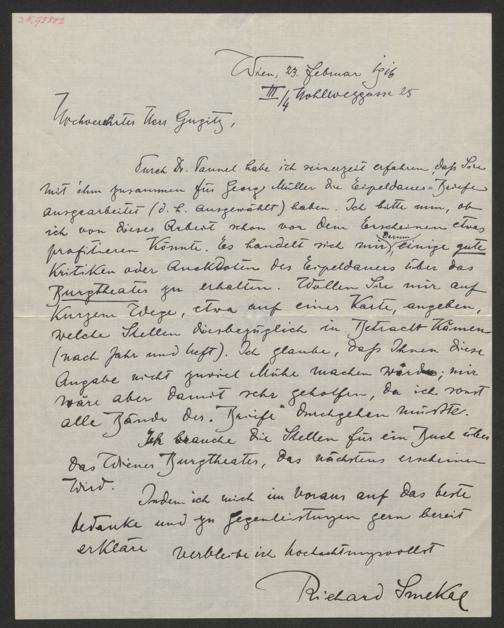 Wien, 23. Februar 1916
III/4 Kohlweggasse 25
Hochverehrter Herr Gugitz,
Durch Dr. Pannel habe ich seinerzeit erfahren, daß Sie
mit ihm zusammen für Georg Müller die Eipeldauer-Briefe
ausgearbeitet (d. h. ausgewählt) haben. Ich bitte nun, ob
ich von dieser Arbeit schon vor dem Erscheinen etwas
profitieren könnte. Es handelt sich mir darum, einige gute
Kritiken oder Anekdoten des Eipeldauers über das
Burgtheater zu erhalten. Wollen Sie mir auf
kurzem Wege, etwa auf einer Karte, angeben,
welche Stellen diesbezüglich in Betracht kämen
(nach Jahr und Heft). Ich glaube, daß Ihnen diese
Angabe nicht zuviel Mühe machen würde; mir
wäre aber damit sehr geholfen, da ich sonst
alle Bände der „Briefe“ durchgehen müßte.
Ich brauche die Stellen für ein Buch über
das Wiener Burgtheater, das nächstens erscheinen
wird.
Indem ich mich im Voraus auf das beste
bedanke und zu Gegenleistungen gern bereit
erkläre verbleibe ich hochachtungsvollst
Richard Smekal